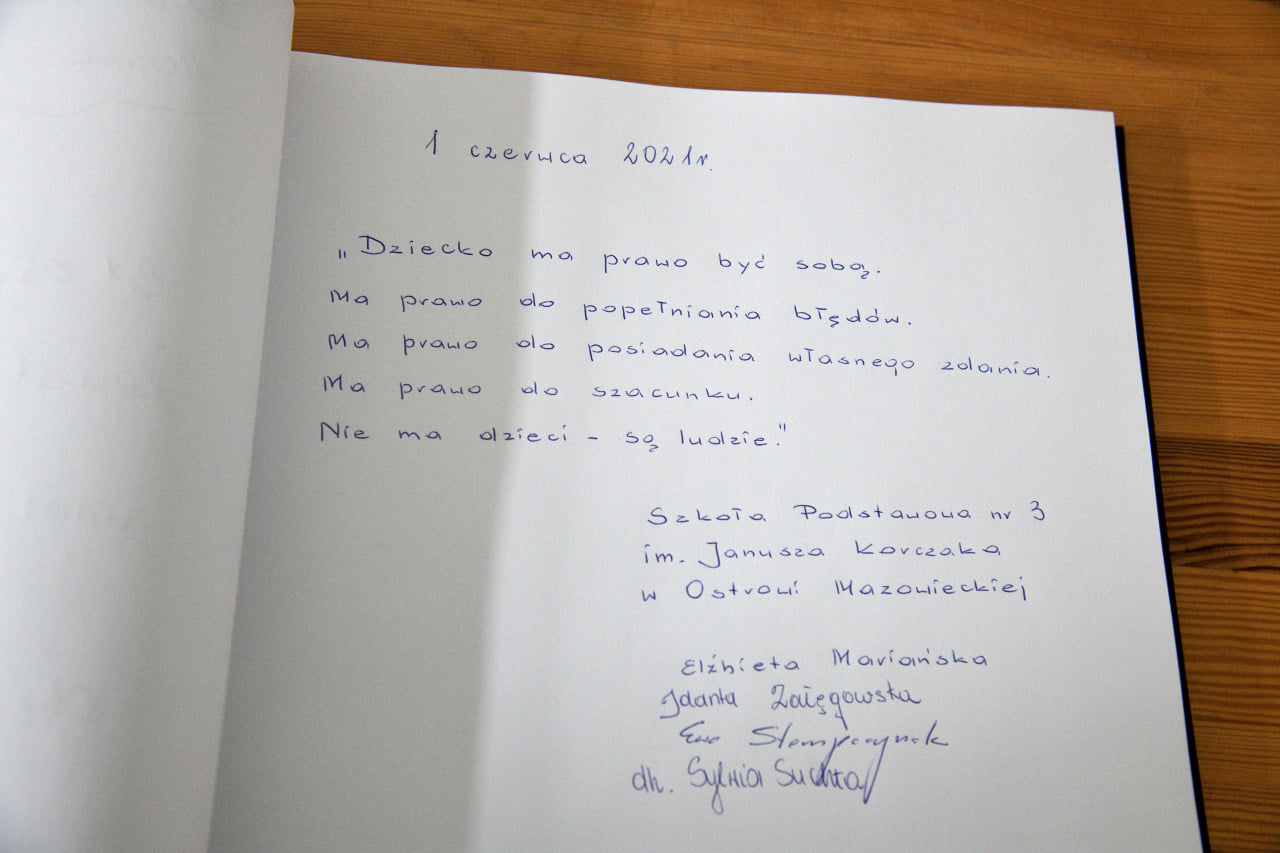 1 czerwca 2021r.
„Dziecko ma prawo być sobą.
Ma prawo do popełniania błędów.
Ma prawo do posiadania własnego zdania.
Ma prawo do szacunku.
Nie ma dzieci - są ludzie."
Szkoła Podstawowa nr 3
im. Janusza Korczaka
w Ostrowi Mazowieckiej
Elżbieta Mariańska
Zaięgowska
Ewa
dh. Sylwia Suchta